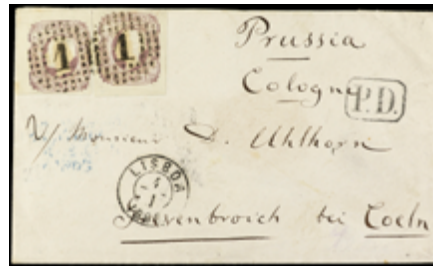 1 1
Prussia
Cologne
P.D.
Monsieur D. Uhlhorn
LISBOA
4
1
Grevenbroich bei Coeln